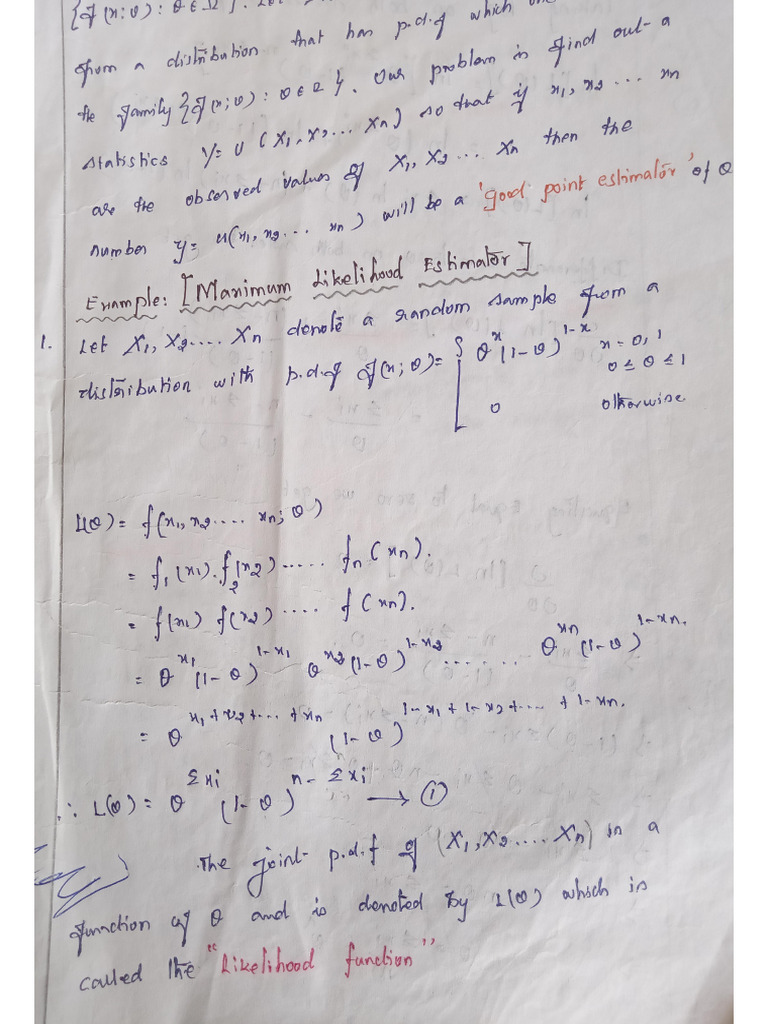 {f(x;θ) : θ ∈ Ω}. Let
from a distribution that has p.d.f which one
the family {f(x;θ) : θ ∈ Ω}. Our problem is find out a
statistics Y = U (X₁, X₂ ... Xn) so that if x₁, x₂ ... xn
are the observed values of X₁, X₂ ... Xn then the
number y = u(x₁, x₂ ... xn) will be a 'good point estimator' of θ
Example: [Maximum Likelihood Estimator]
1. Let X₁, X₂ .... Xn denote a random sample from a
distribution with p.d.f f(x;θ) = { θ^x (1-θ)^{1-x} x = 0, 1
0 ≤ θ ≤ 1
0 otherwise
L(θ) = f(x₁, x₂ .... xn; θ)
= f₁(x₁). f₂(x₂) ..... fn(xn).
= f(x₁) f(x₂) .... f(xn).
= θ^{x₁} (1-θ)^{1-x₁} θ^{x₂} (1-θ)^{1-x₂} ........ θ^{xn} (1-θ)^{1-xn}.
= θ^{x₁+x₂+...+xn} (1-θ)^{1-x₁+1-x₂+....+1-xn}.
∴ L(θ) = θ^{Σxi} (1-θ)^{n-Σxi} → ①
The joint p.d.f of (X₁, X₂ .... Xn) is a
function of θ and is denoted by L(θ) which is
called the "Likelihood function"